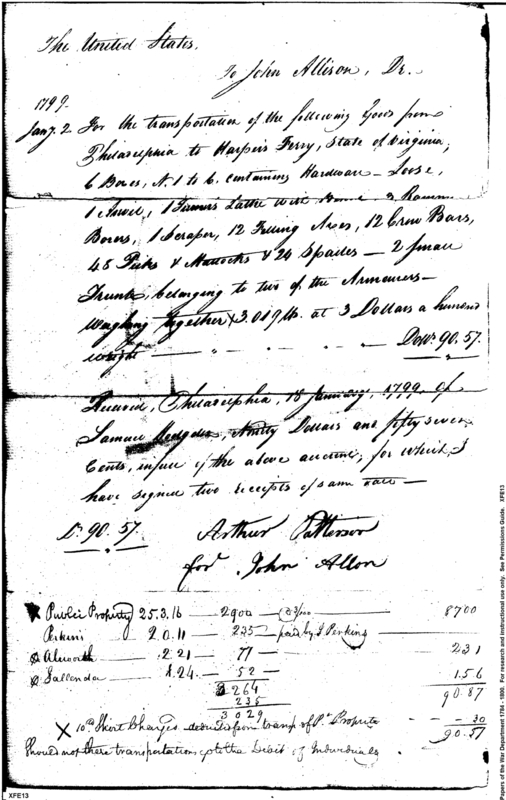 The United States,
To John Allison, Dr.
1799.
Jany. 2 For the transportation of the following Goods from
Philadelphia to Harper's Ferry, State of Virginia;
6 Boxes, N. 1 to 6. containing Hardware – Loose,
1 Anvil, 1 Turner's Lathe with Bench 3
Borers, 1 Scraper, 12 Felling Axes, 12 Crow Bars,
48 Picks & Mattocks & 24 Spades – 2 small
Trunks, belonging to two of the Armourers –
Weighing together X 3.019 lb. at 3 Dollars a hundred
weight — " — " — Dolrs. 90.57.
Received, Philadelphia, 18 January, 1799. of
Samuel Hodgdon, Ninety Dollars and fifty seven
Cents, in full of the above account; for which I
have signed two receipts of same date —
Ds. 90.57. Arthur Patterson
for John Allon
X Public Property 25.3.16 — 2900 — @ 3/100 — 8700
Perkins 2.0.11 — 235 — paid by J Perkins
2.21 — 77 — 231
1.24 — 52 — 1.56
3264 90.87
235
3029 – 30
X 10 lb Short Charged deducted from transp. of P. Property 90.57
Should not these transportations go to the Debit of Individuals
XFE13
Papers of the War Department 1784 - 1800. For research and instructional use only. See Permissions Guide. XFE13